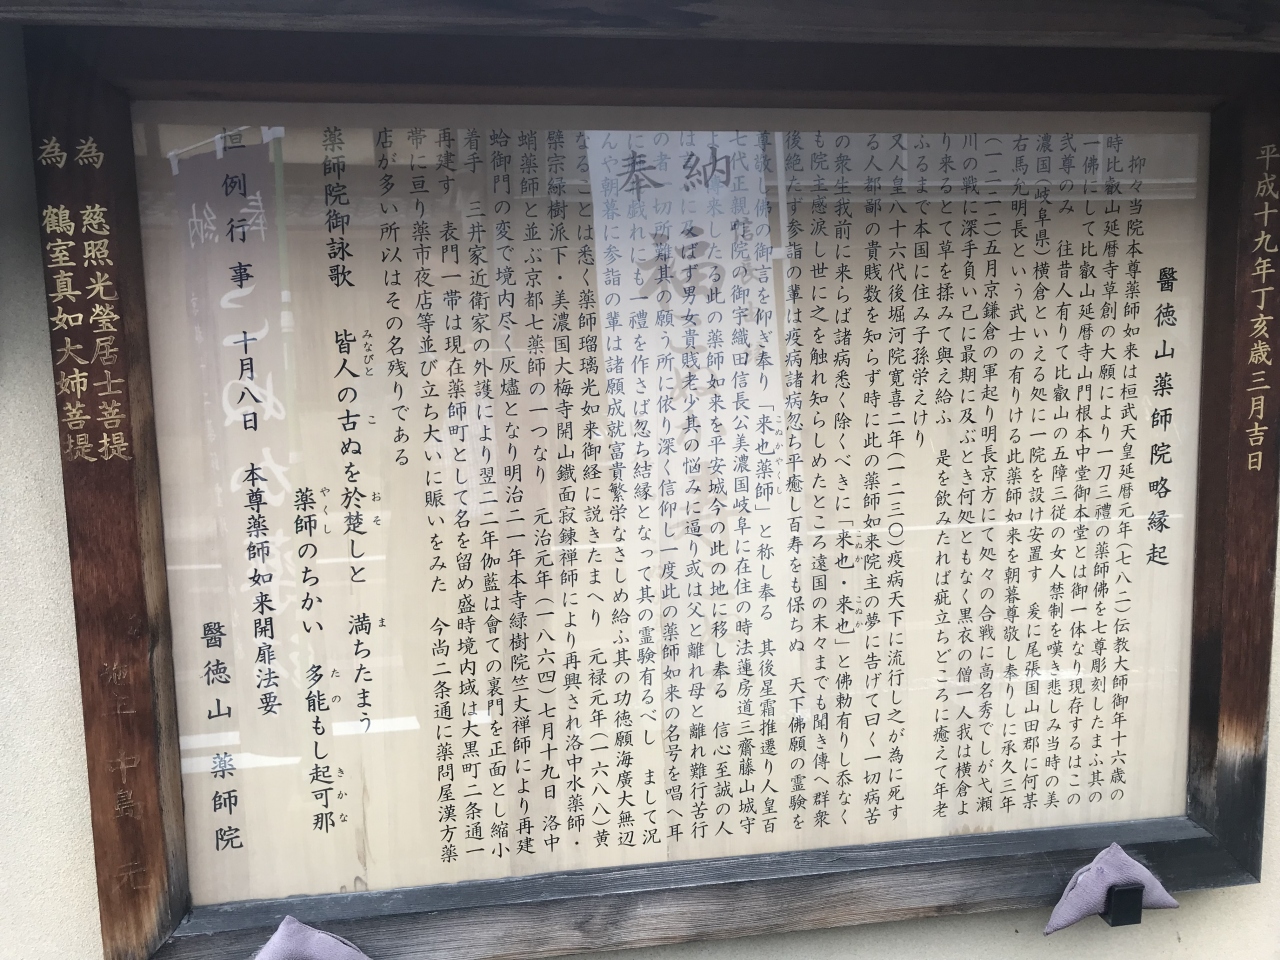 平成十九年丁亥歳三月吉日
醫徳山薬師院略縁起
抑々当院本尊薬師如来は桓武天皇延暦元年(七八二)伝教大師御年十六歳の
時比叡山延暦寺草創の大願により一刀三禮の薬師佛を七尊彫刻したまふ其の
一佛にして比叡山延暦寺山門根本中堂御本堂とは御一体なり現存するはこの
弐尊のみ 往昔人有りて比叡山の五障三従の女人禁制を嘆き悲しみ当時の美
濃国(岐阜県)横倉といえる処に一院を設け安置す 爰に尾張国山田郡に何某
右馬允明長という武士の有りける此薬師如来を朝暮尊敬し奉りしに承久三年
(一二二一)五月京鎌倉の軍起り明長京方にて処々の合戦に高名秀でしが弋瀬
川の戰に深手負い己に最期に及ぶとき何処ともなく黒衣の僧一人我は横倉よ
り来るとて草を揉みて興え給ふ 是を飲みたれば疵立ちどころに癒えて年老
ふるまで本国に住み子孫栄えけり
又人皇八十六代後堀河院寛喜二年(一二三〇)疫病天下に流行し之が為に死す
る人都鄙の貴賎数を知らず時に此の薬師如来院主の夢に告げて曰く一切病苦
の衆生我前に来らば諸病悉く除くべきに「来也・来也」と佛勅有りし忝なく
こぬか こぬか
も院主感涙し世に之を触れ知らしめたところ遠国の末々までも聞き傳へ群衆
後絶たず参詣の輩は疫病諸病忽ち平癒し百寿をも保ちぬ 天下佛願の霊験を
尊敬し佛の御言を仰ぎ奉り「来也薬師」と称し奉る 其後星霜推遷り人皇百
こぬかやくし
七代正親町院の御宇織田信長公美濃国岐阜に在住の時法蓮房道三齋藤山城守
より傳来したる此の薬師如来を平安城今の此の地に移し奉る 信心至誠の人
は言に及ばず男女貴賎老少其の悩みに逼り或は父と離れ母と離れ難行苦行
の者一切所難其の願う所に依り深く信仰し一度此の薬師如来の名号を唱へ耳
に戯れにも一禮を作さば忽ち結縁となって其の霊験有るべし まして況
んや朝暮に参詣の輩は諸願成就富貴繁栄なさしめ給ふ其の功徳願海廣大無辺
なることは悉く薬師瑠璃光如来御経に説きたまへり 元禄元年(一六八八)黄
檗宗緑樹派下・美濃国大梅寺開山鐵面寂錬禅師により再興され洛中水薬師・
蛸薬師と並ぶ京都七薬師の一つなり 元治元年(一八六四)七月十九日 洛中
蛤御門の変で境内尽く灰燼となり明治二一年本寺緑樹院竺丈禅師により再建
着手 三井家近衛家の外護により翌二二年伽藍は會ての裏門を正面とし縮小
再建す 表門一帯は現在薬師町として名を留め盛時境内域は大黒町二条通一
帯に亘り薬市夜店等並び立ち大いに賑いをみた 今尚二条通に薬問屋漢方薬
店が多い所以はその名残りである
薬師院御詠歌 皆人の古ぬを於楚しと 満ちたまう
みなびと こ おそ ま
薬師のちかい 多能もし起可那
やくし たの きかな
恒例行事 十月八日 本尊薬師如来開扉法要
醫徳山 薬師院
為 慈照光瑩居士菩提
為 鶴室真如大姉菩提
施主 中島 元
奉納